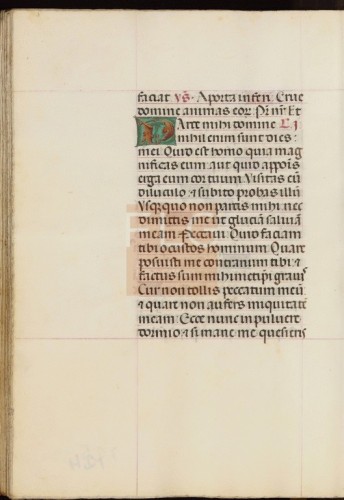 faciat vs. A porta inferi. Erue
domine animas eoꝝ. Pr̄ nr̄. Et
Parce mihi domine L. I.
nihil enim sunt dies
mei. Quid est homo quia mag
nificas eum aut quid appōis
erga eum cor tuum Visitas eū
diluculo, & subito probas illū
Vsq; quo non parcis mihi nec
dimittis me ut glutiā saliuā
meam Peccaui Quid faciam
tibi o custos hominum Quare
posuisti me contrarium tibi &
factus sum mihimetipi grauis
Cur non tollis peccatum meū
& quare non aufers iniquitatē
meam. Ecce nunc in puluere
dormio & si mane me quesieris